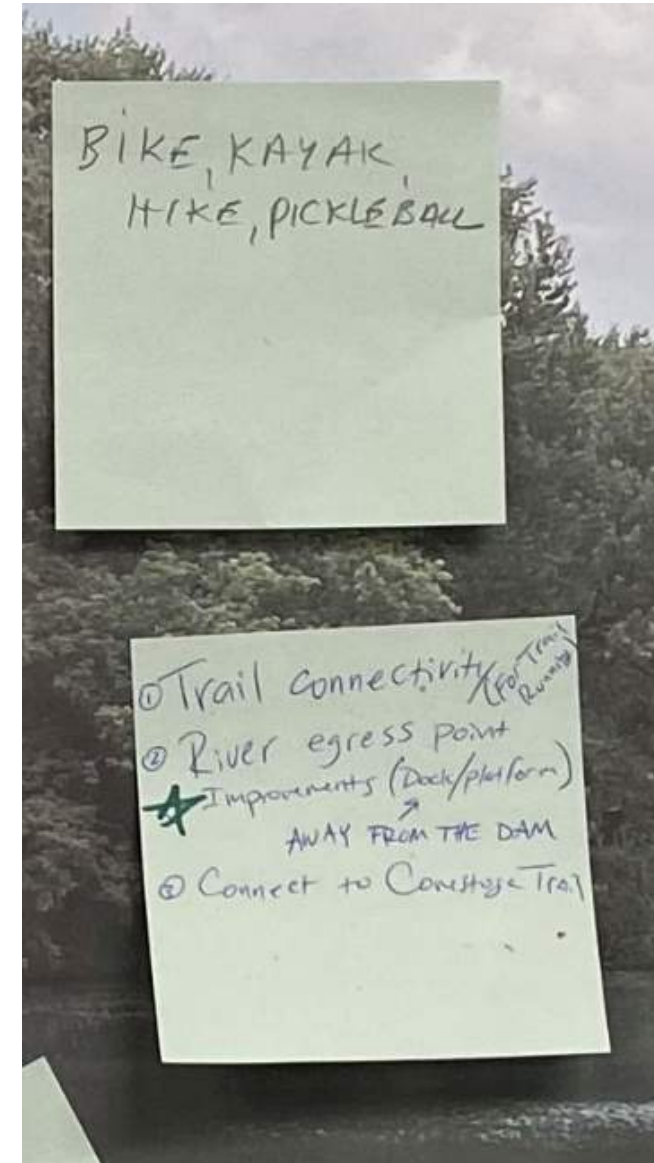 BIKE, KAYAK,
HIKE, PICKLEBALL
① Trail connectivity (For Trail
Running)
② River egress point
☆ Improvements (Dock/platform)
↗
AWAY FROM THE DAM
③ Connect to Conestoga Trail